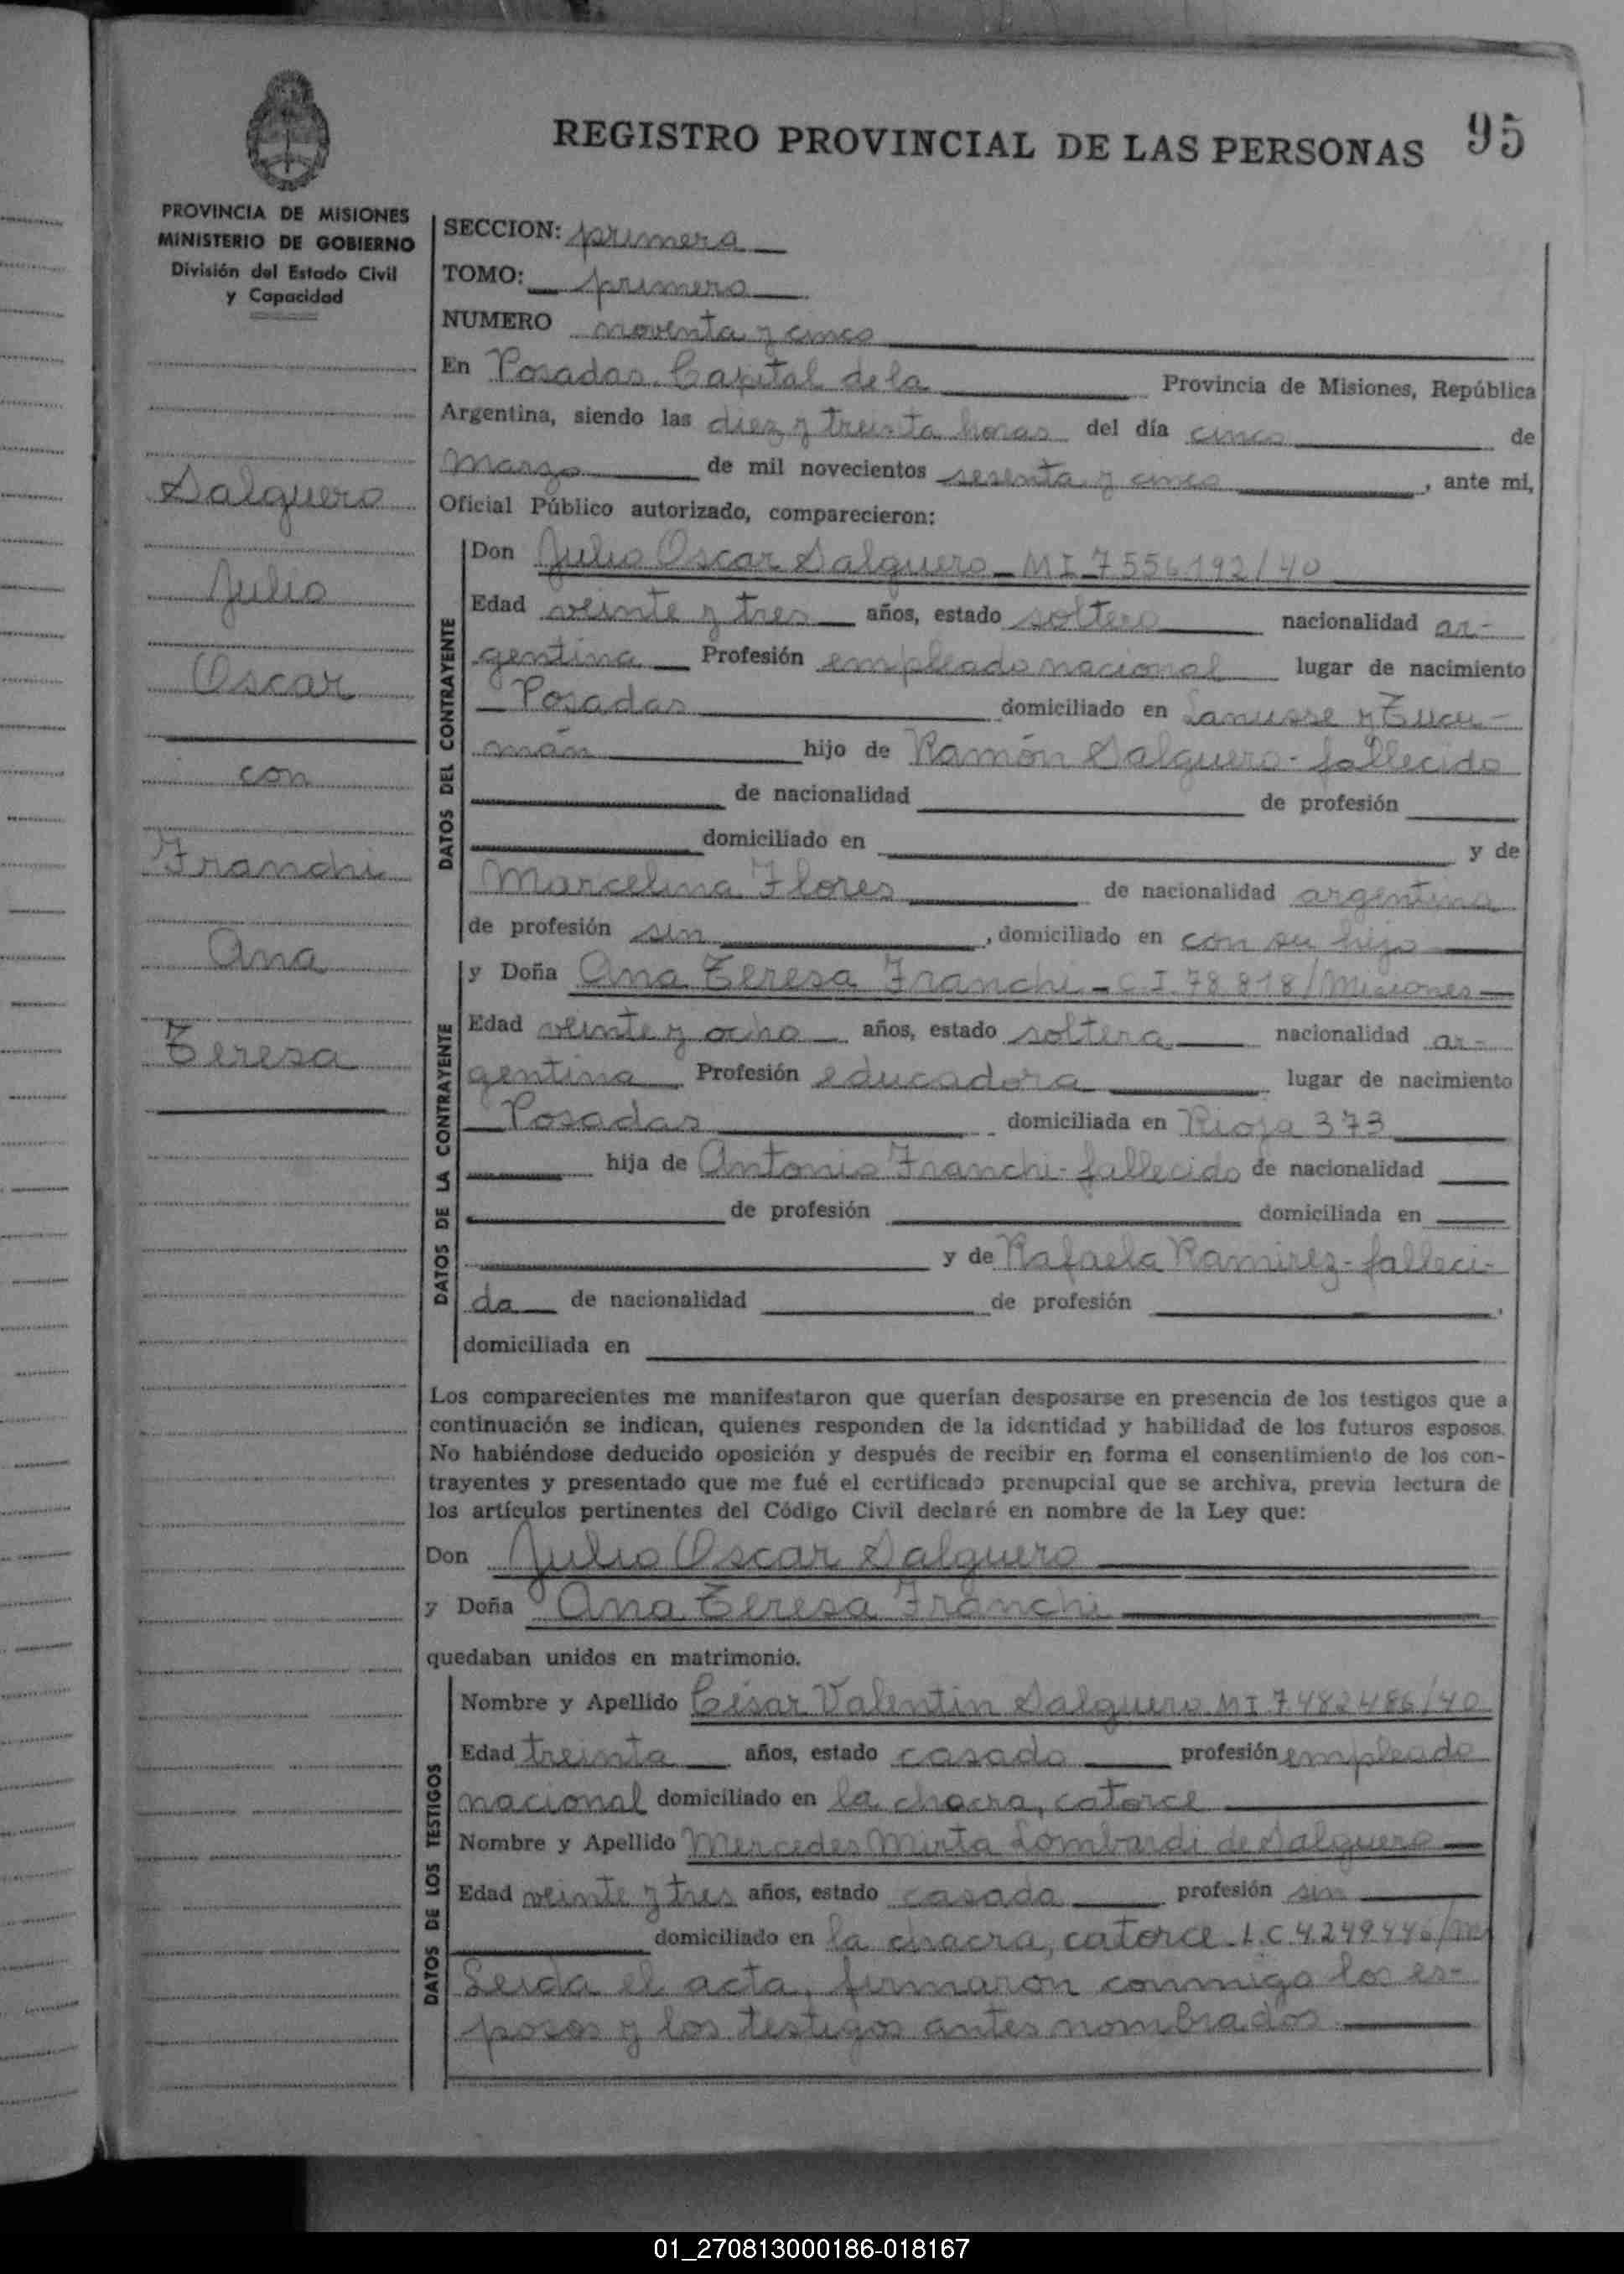 REGISTRO PROVINCIAL DE LAS PERSONAS 95
PROVINCIA DE MISIONES
MINISTERIO DE GOBIERNO
División del Estado Civil
y Capacidad
Salguero
Julio
Oscar
con
Franchi
Ana
Teresa
SECCION: primera
TOMO: primero
NUMERO noventa y cinco
En Posadas Capital de la Provincia de Misiones, República
Argentina, siendo las diez y treinta horas del día cinco de
marzo de mil novecientos sesenta y cinco, ante mi,
Oficial Público autorizado, comparecieron:
DATOS DEL CONTRAYENTE
Don Julio Oscar Salguero - MI 7556192/40
Edad veinte y tres años, estado soltero nacionalidad ar-
gentina Profesión empleado nacional lugar de nacimiento
Posadas domiciliado en Lanusse y Tucu-
mán hijo de Ramón Salguero - fallecido
de nacionalidad de profesión
domiciliado en y de
Marcelina Flores de nacionalidad argentina
de profesión sin, domiciliado en con su hijo
DATOS DE LA CONTRAYENTE
y Doña Ana Teresa Franchi - C.I. 78.818/Misiones
Edad veinte y ocho años, estado soltera nacionalidad ar-
gentina Profesión educadora lugar de nacimiento
Posadas domiciliada en Rioja 373
hija de Antonio Franchi - fallecido de nacionalidad
de profesión domiciliada en
y de Rafaela Ramirez - falleci-
da de nacionalidad de profesión ,
domiciliada en
Los comparecientes me manifestaron que querían desposarse en presencia de los testigos que a
continuación se indican, quienes responden de la identidad y habilidad de los futuros esposos.
No habiéndose deducido oposición y después de recibir en forma el consentimiento de los con-
trayentes y presentado que me fué el certificado prenupcial que se archiva, previa lectura de
los artículos pertinentes del Código Civil declaré en nombre de la Ley que:
Don Julio Oscar Salguero
y Doña Ana Teresa Franchi
quedaban unidos en matrimonio.
DATOS DE LOS TESTIGOS
Nombre y Apellido César Valentin Salguero MI 7.482486/40
Edad treinta años, estado casado profesión empleado
nacional domiciliado en la chacra, catorce
Nombre y Apellido Mercedes Mirta Lombardi de Salguero
Edad veinte y tres años, estado casada profesión sin
domiciliado en la chacra, catorce - L.C. 4.249446/
Leida el acta, firmaron conmigo los es-
posos y los testigos antes nombrados
01_270813000186-018167